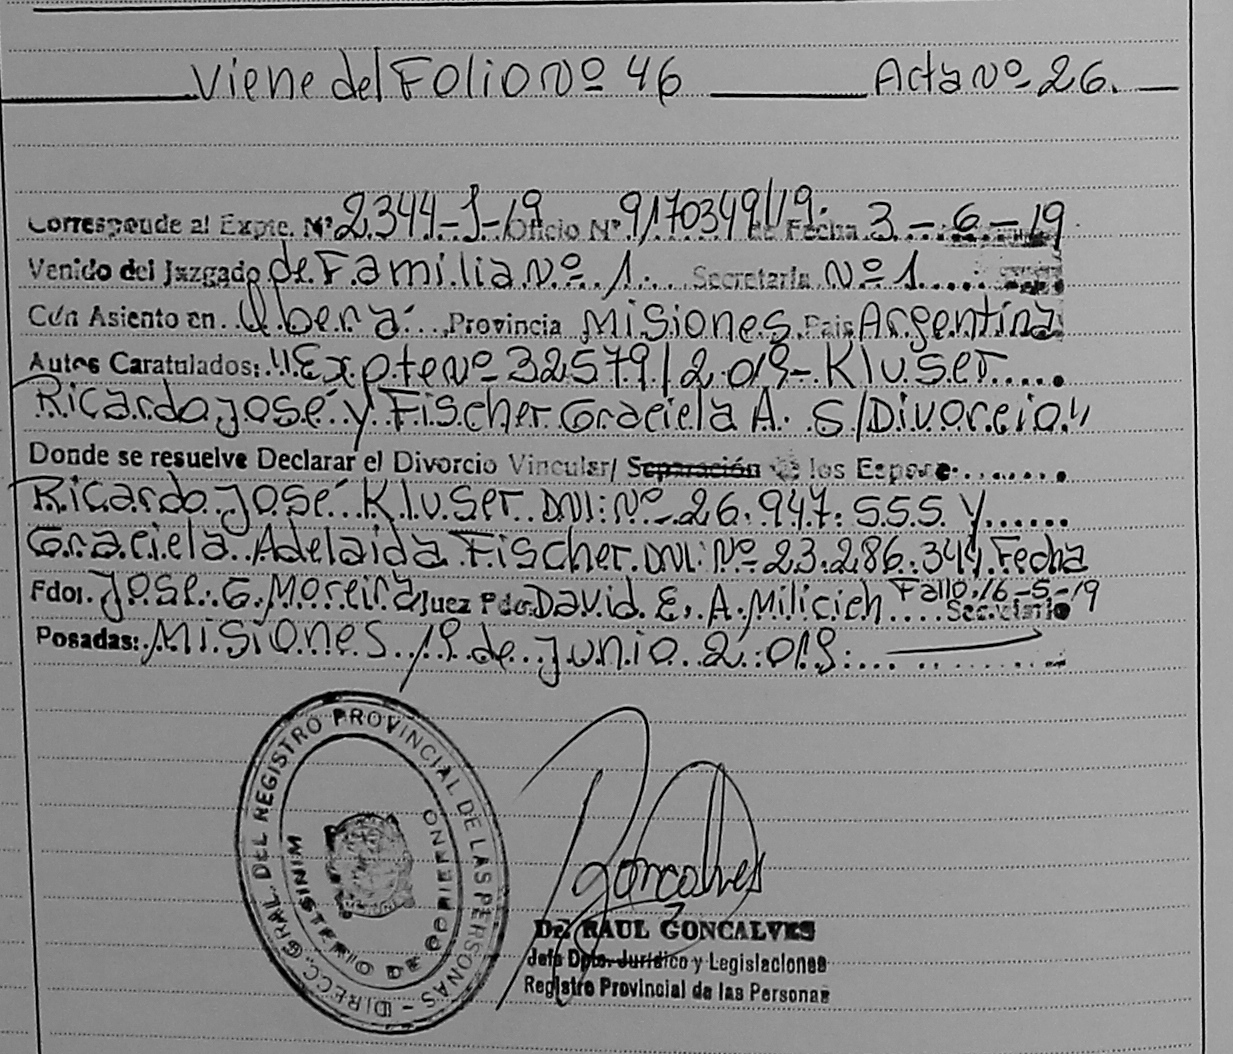 Viene del Folio Nº 46 Acta Nº 26.
Corresponde al Expte. Nº 2344-J-19 Oficio Nº 9170349/19 de Fecha 3-6-19
Venido del Juzgado de Familia Nº 1. Secretaría Nº 1
Con Asiento en Oberá Provincia Misiones País Argentina
Autos Caratulados: "Expte Nº 32579/2019- Kluser
Ricardo José y Fischer Graciela A. S/Divorcio"
Donde se resuelve Declarar el Divorcio Vincular/ Separación de los Esposo:
Ricardo José Kluser DNI: Nº 26.947.555 y
Graciela Adelaida Fischer DNI: Nº 23.286.344. Fecha
Fdo. José G. Moreira Juez Fdo. David E. A. Milicich Fallo 16-5-19 Secretario
Posadas: Misiones 19 de Junio 2.019:
DIRECC. GRAL. DEL REGISTRO PROVINCIAL DE LAS PERSONAS
MINISTERIO DE GOBIERNO
Goncalves
Dr. RAUL GONCALVES
Jefe Dpto. Jurídico y Legislaciones
Registro Provincial de las Personas